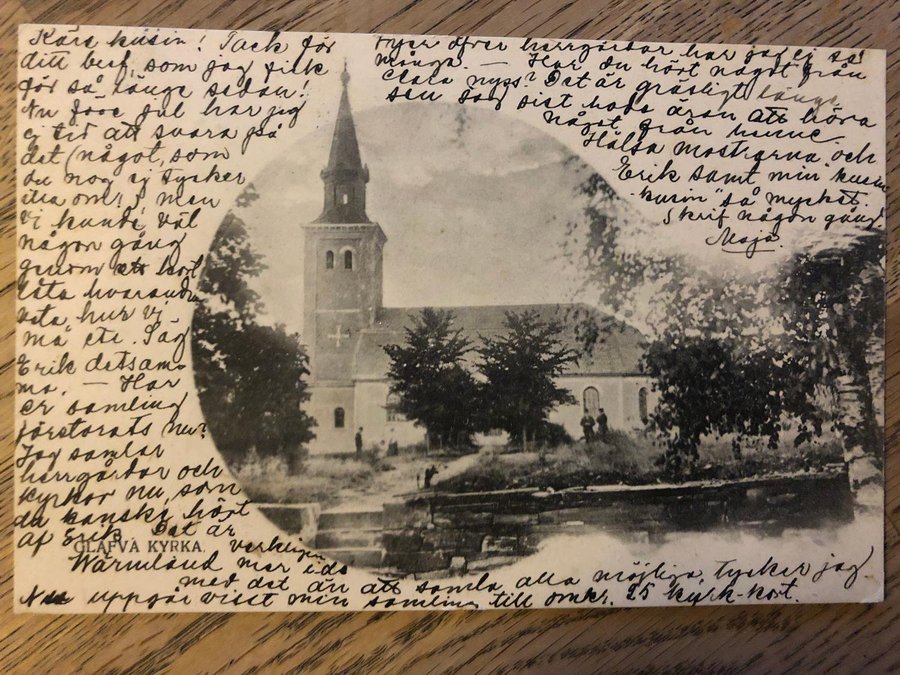 Kära kusin! Tack för
ditt bref, som jag fick
för så länge sedan!
Nu före jul har jag
ej tid att svara på
det (något, som
du nog ej tycker
illa om?) men
vi kunde väl
någon gång
genom ett kort
låta hvarandra
veta, hur vi
må etc. Säg
Erik detsam-
ma. — Har
er samling
förstorats nu?
Jag samlar
herrgårdar och
kyrkor nu, som
du kanske hört
af Erik. Det är
GLAFVA KYRKA.
verkligen
med det än att samla alla möjliga, tycker jag
Nu uppgår visst min samling till omkr. 25 kyrk-kort.
öfver herrgårdar har jag ej så
många. — Har du hört något från
nyss? Det är gräsligt länge
sen jag sist hade äran att höra
något från henne.
Hälsa mostrarna och
Erik samt min "kusin
kusin" så mycket.
Skrif någon gång!
Maja.